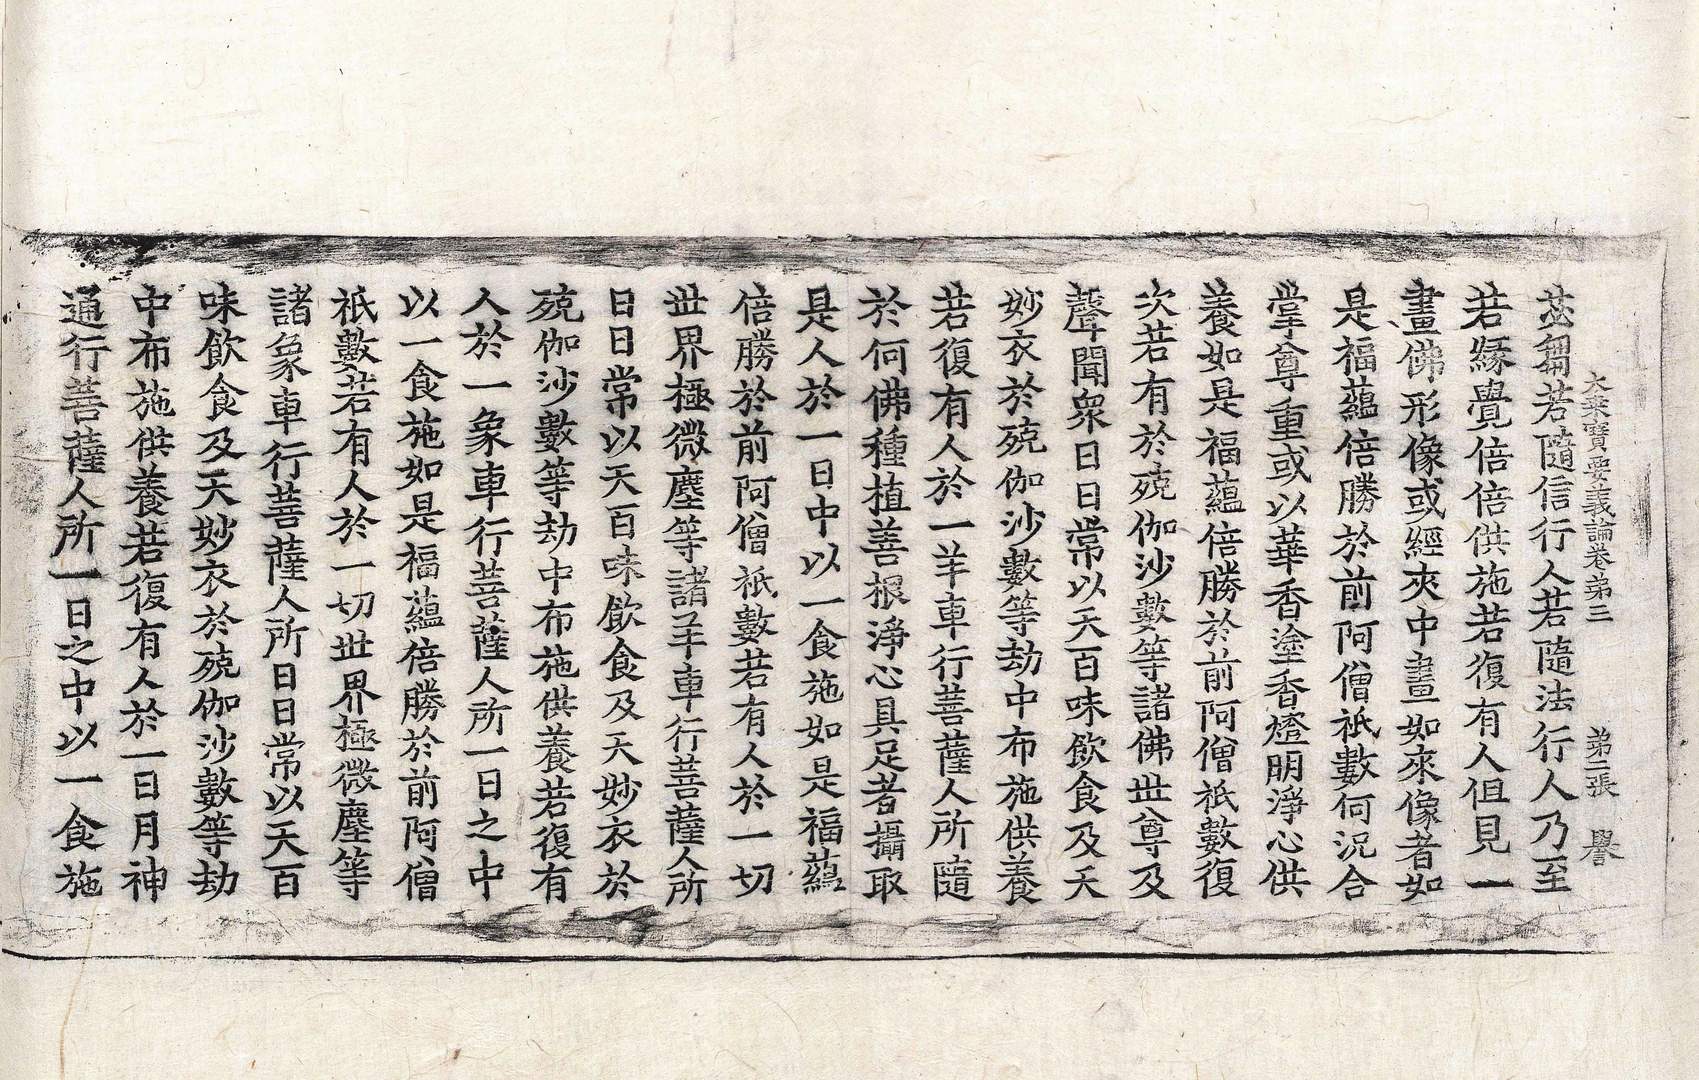 大乘寶要義論卷第三　第二張　譽
苾芻若隨信行人若隨法行人乃至
若緣覺倍倍供施若復有人但見一
畫佛形像或經夾中畫如來像者如
是福蘊倍勝於前阿僧祇數何況合
掌尊重或以華香塗香燈明淨心供
養如是福蘊倍勝於前阿僧祇數復
次若有於殑伽沙數等諸佛世尊及
聲聞眾日日常以天百味飲食及天
妙衣於殑伽沙數等劫中布施供養
若復有人於一羊車行菩薩人所隨
於何佛種植善根淨心具足者攝取
是人於一日中以一食施如是福蘊
倍勝於前阿僧祇數若有人於一切
世界極微塵等諸羊車行菩薩人所
日日常以天百味飲食及天妙衣於
殑伽沙數等劫中布施供養若復有
人於一象車行菩薩人所一日之中
以一食施如是福蘊倍勝於前阿僧
祇數若有人於一切世界極微塵等
諸象車行菩薩人所日日常以天百
味飲食及天妙衣於殑伽沙數等劫
中布施供養若復有人於一日月神
通行菩薩人所一日之中以一食施